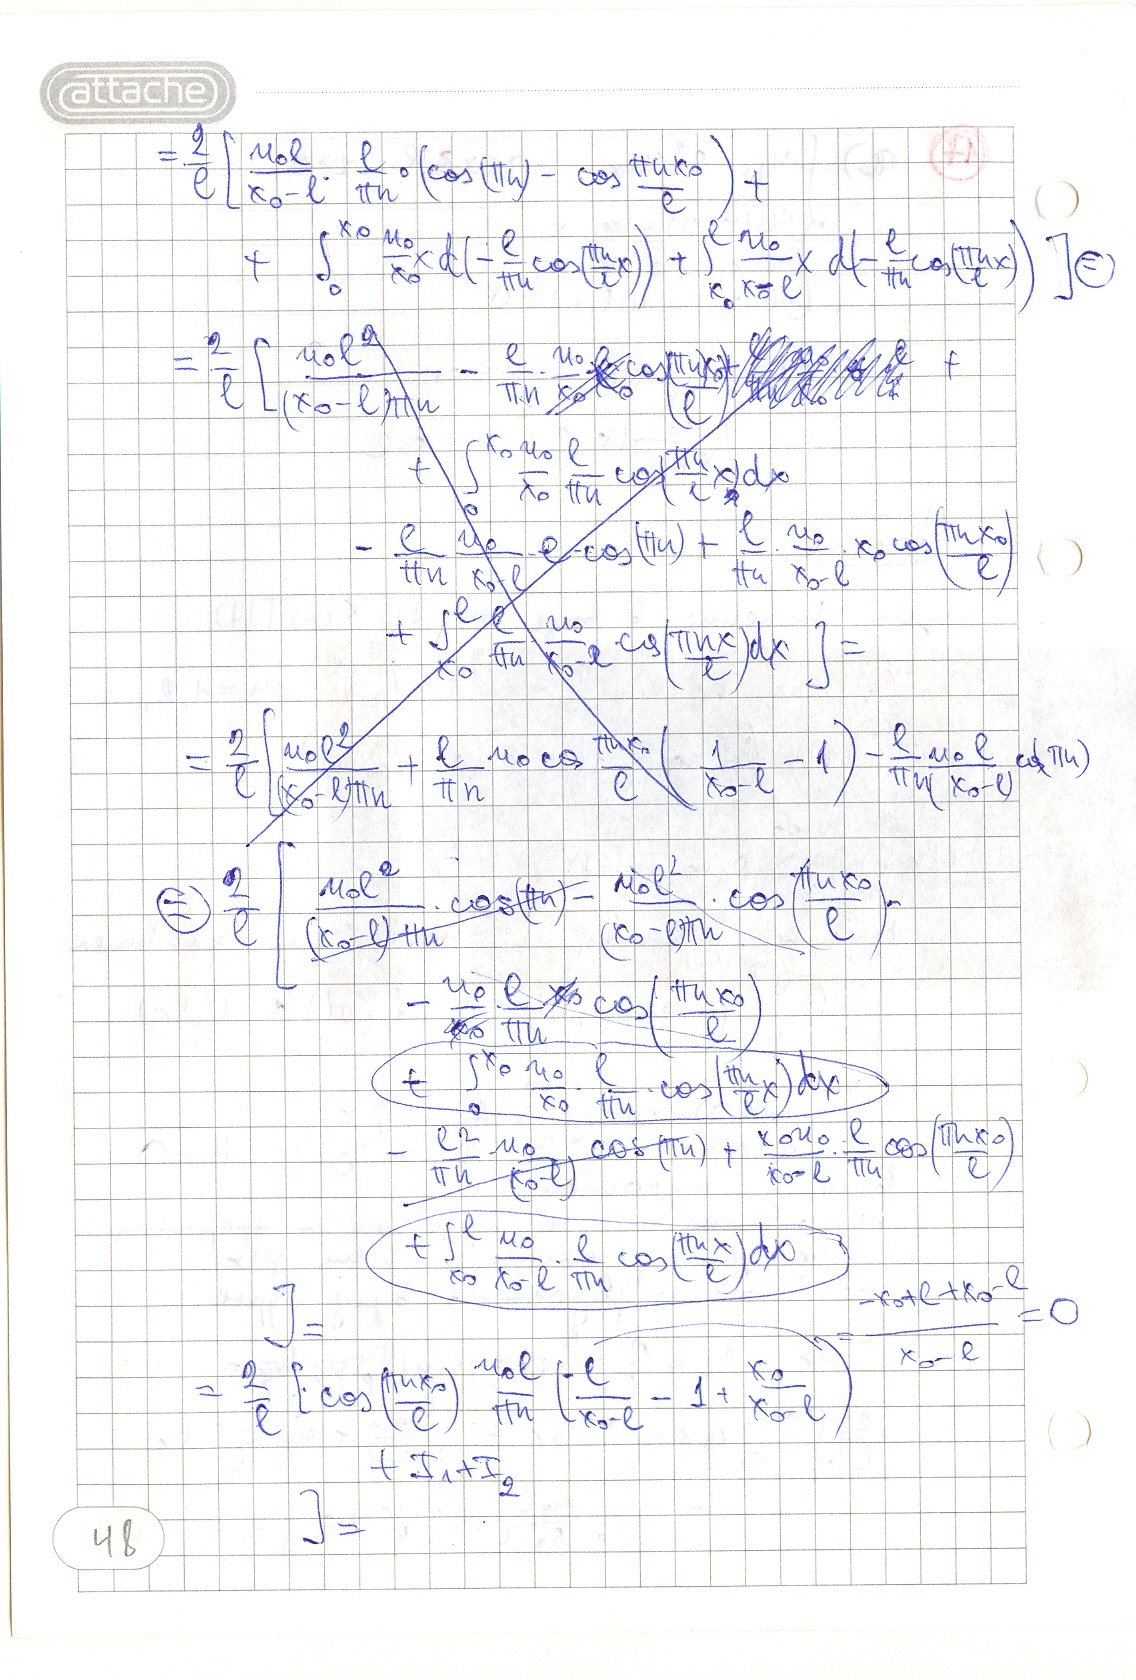 attache
47
= 2/l [ u₀l/(x₀-l) · l/πn · (cos(πn) - cos πnx₀/l) +
+ ∫₀^x₀ u₀/x₀ x d(-l/πn cos(πn/l x)) + ∫_x₀^l u₀/(x₀-l) x d(-l/πn cos(πnx/l)) ] (=)
= 2/l [ u₀l²/((x₀-l)πn) - l/πn · u₀/x₀ · x₀ cos(πnx₀/l) +
+ ∫₀^x₀ u₀/x₀ l/πn cos(πn/l x) dx
- l/πn · u₀/(x₀-l) · l · cos(πn) + l/πn · u₀/(x₀-l) · x₀ cos(πnx₀/l)
+ ∫_x₀^l l/πn · u₀/(x₀-l) cos(πnx/l) dx ] =
= 2/l [ u₀l²/((x₀-l)πn) + l/πn u₀ cos πnx₀/l ( 1/(x₀-l) - 1 ) - l/πn u₀l/(x₀-l) cos(πn)
(=) 2/l [ u₀l²/((x₀-l)πn) · cos(πn) - u₀l²/((x₀-l)πn) · cos(πnx₀/l) -
- u₀/x₀ l/πn x₀ cos(πnx₀/l)
+ ∫₀^x₀ u₀/x₀ · l/πn · cos(πn/l x) dx
- l²/πn u₀/(x₀-l) cos(πn) + x₀u₀/(x₀-l) · l/πn cos(πnx₀/l)
+ ∫_x₀^l u₀/(x₀-l) · l/πn cos(πnx/l) dx
] =
= 2/l [ cos(πnx₀/l) u₀l/πn ( -l/(x₀-l) - 1 + x₀/(x₀-l) ) = (-x₀+l+x₀-l)/(x₀-l) = 0
+ I₁ + I₂
] =
48